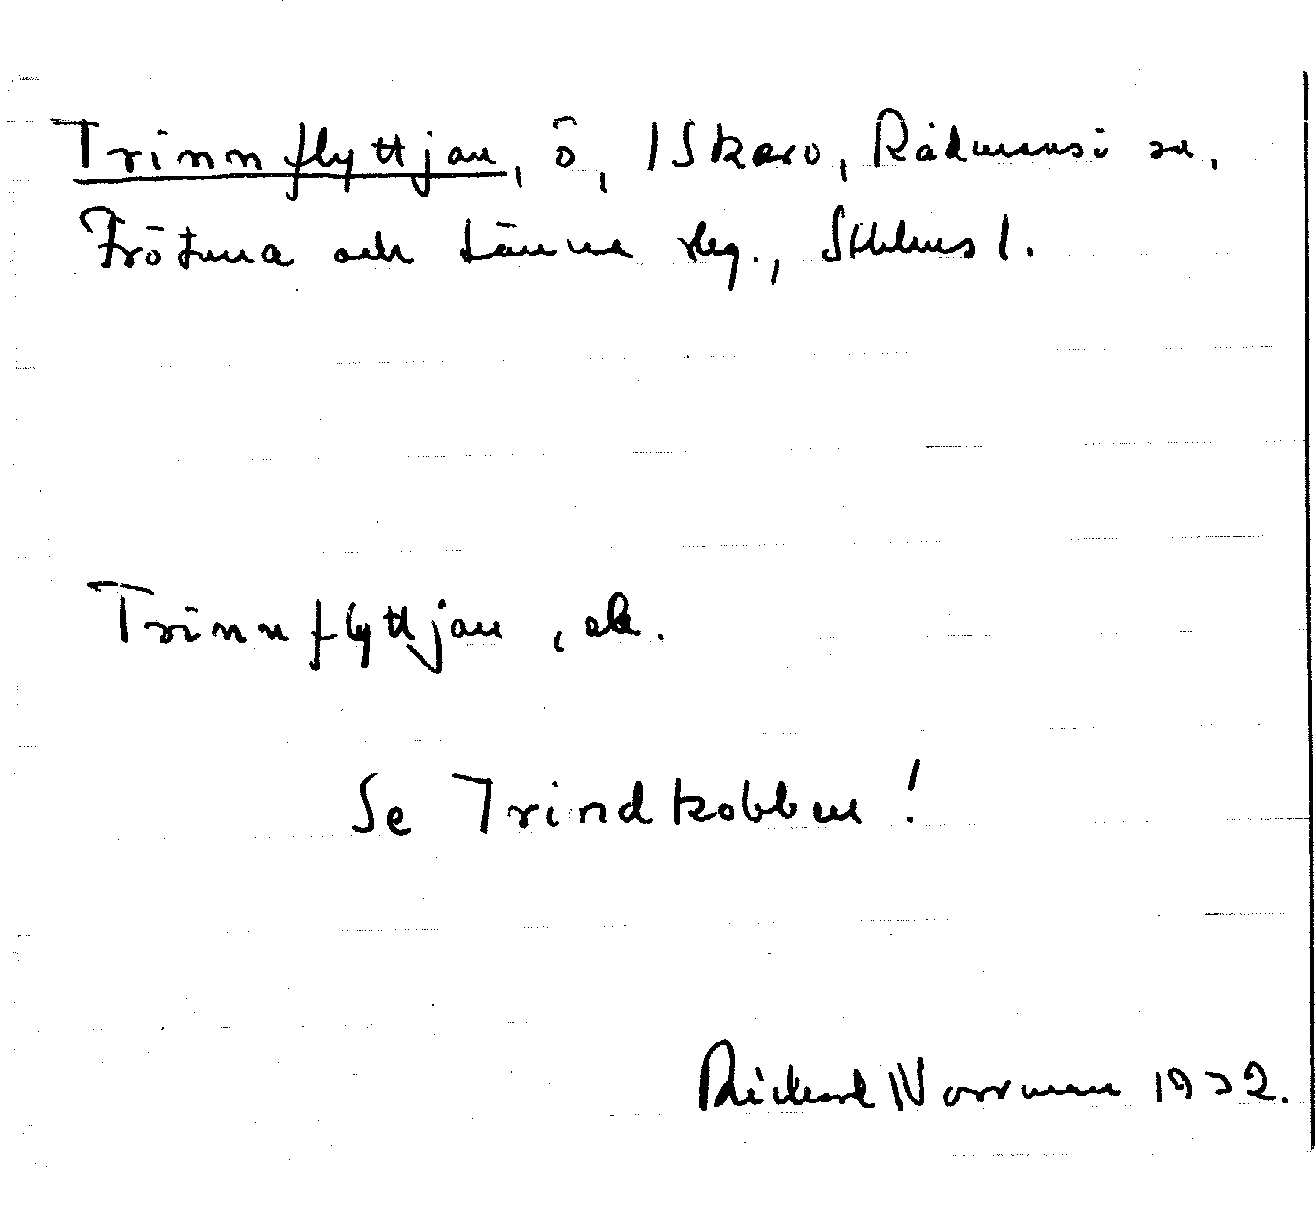 Trinnflyttjan, ö, Iskaro, Rådmansö sn,
Frötuna och Länna skg., Sthlms l.
Trinnflyttjan,
Se Trindkobben!
Richard Norrman 1932.